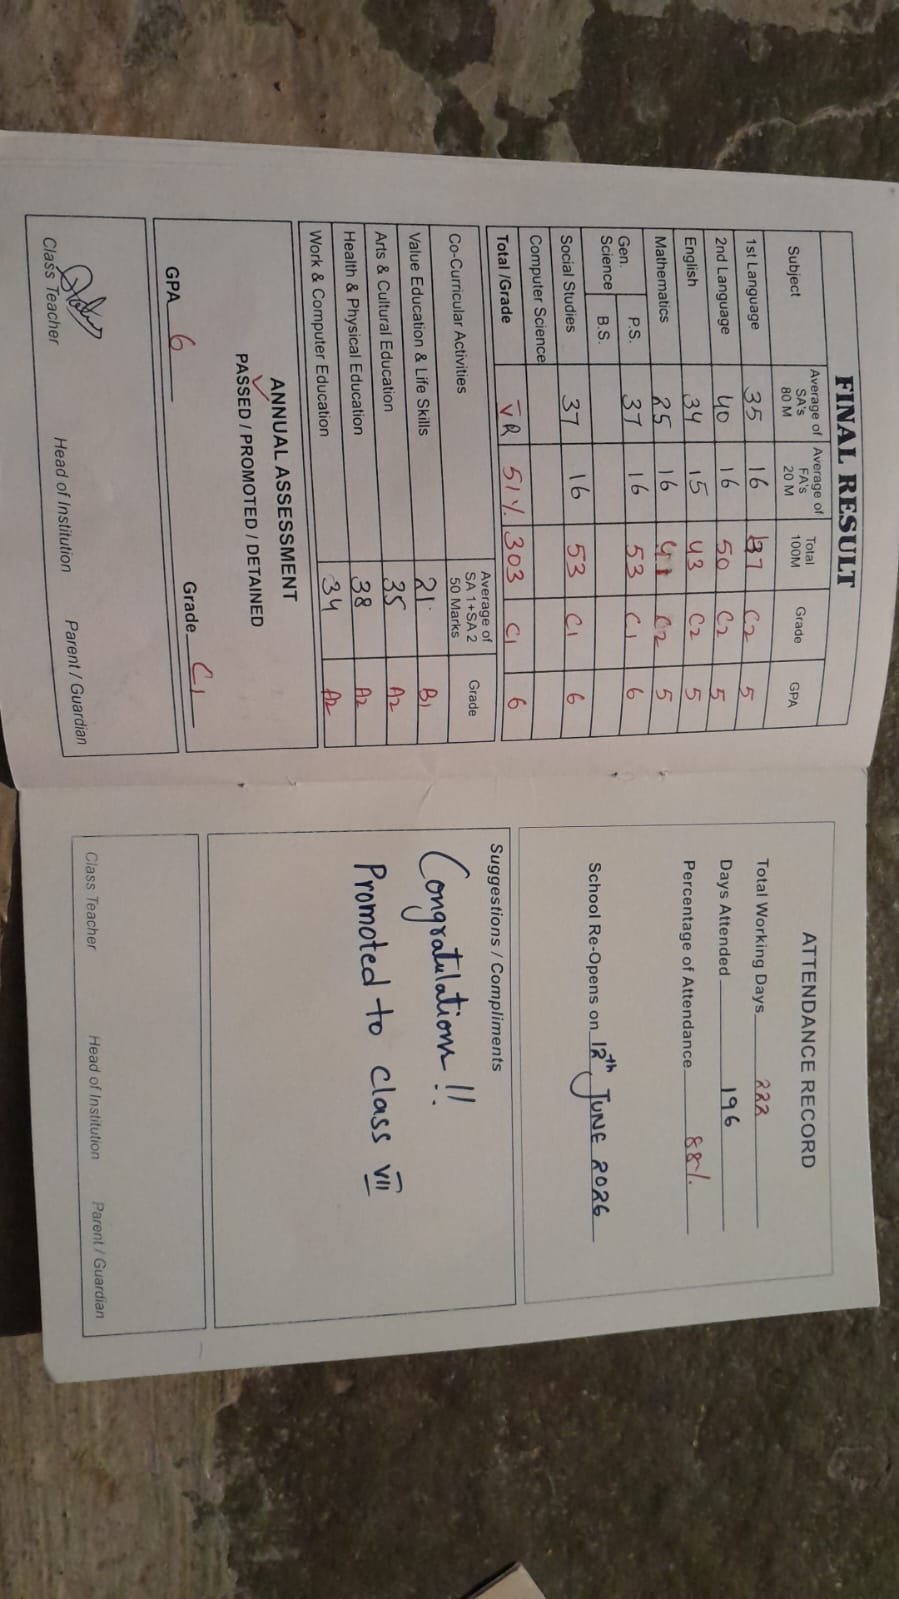 FINAL RESULT
Subject Average of SA's 80 M Average of FA's 20 M Total 100M Grade GPA
1st Language 35 16 37 C2 5
2nd Language 40 16 50 C2 5
English 34 15 43 C2 5
Mathematics 25 16 41 C2 5
Gen. Science P.S. 37 16 53 C1 6
B.S.
Social Studies 37 16 53 C1 6
Computer Science
Total /Grade VR 51% 303 C1 6
Co-Curricular Activities Average of SA 1+SA 2 50 Marks Grade
Value Education & Life Skills 21 B1
Arts & Cultural Education 35 A2
Health & Physical Education 38 A2
Work & Computer Education 34 A2
ANNUAL ASSESSMENT
PASSED / PROMOTED / DETAINED
GPA 6 Grade C1
Class Teacher Head of Institution Parent / Guardian
ATTENDANCE RECORD
Total Working Days 222
Days Attended 196
Percentage of Attendance 88%
School Re-Opens on 12th JUNE 2026
Suggestions / Compliments
Congratulations !!
Promoted to class VII
Class Teacher Head of Institution Parent / Guardian